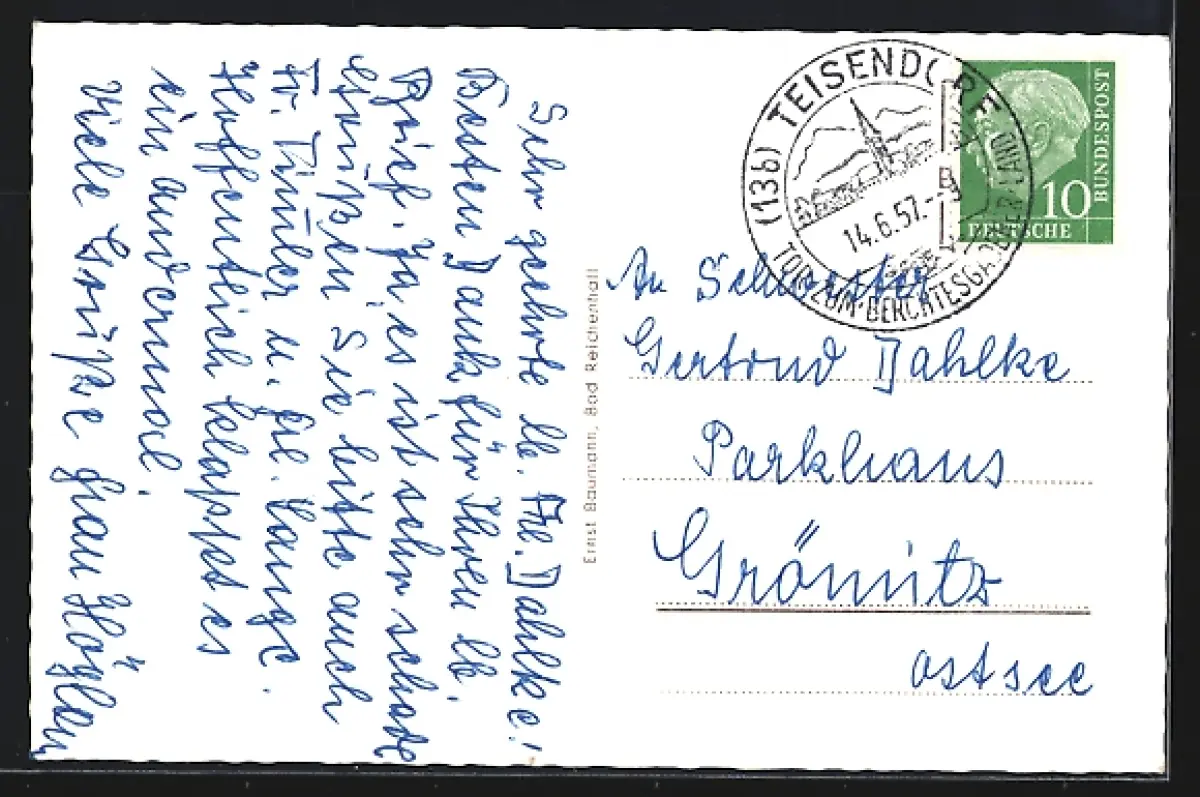 Sehr geehrte lb. Frl. Dahlke!
Besten Dank für Ihren lb.
Brief. Ja, es ist sehr schade
Grüßen Sie bitte auch
Fr. u. Frl. Lange.
Hoffentlich klappt es
ein andermal.
Viele Grüße Frau
Ernst Baumann, Bad Reichenhall
(13b) TEISENDORF
14.6.57.--9
TOR ZUM BERCHTESGADENER LAND
BUNDESPOST
10
DEUTSCHE
An Schwester
Gertrud Dahlke
Parkhaus
Grömitz
Ostsee